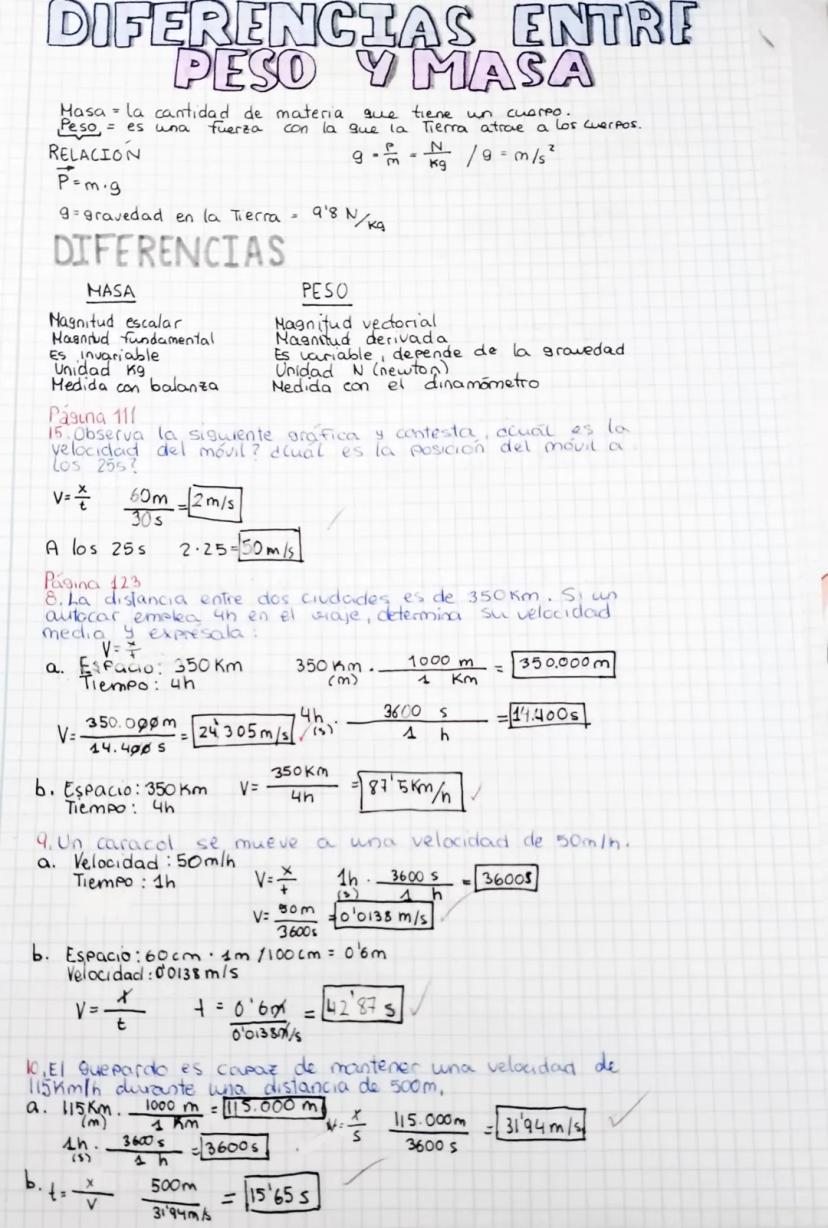 DIFERENCIAS ENTRE
PESO Y MASA
Masa = la cantidad de materia que tiene un cuerpo.
Peso = es una fuerza con la que la Tierra atrae a los cuerpos.
RELACIÓN g = P/m = N/Kg / g = m/s²
P = m·g
g = gravedad en la Tierra = 9'8 N/Kg
DIFERENCIAS
MASA PESO
Magnitud escalar Magnitud vectorial
Magnitud fundamental Magnitud derivada
Es invariable Es variable, depende de la gravedad
Unidad Kg Unidad N (newton)
Medida con balanza Medida con el dinamómetro
Página 111
15. Observa la siguiente gráfica y contesta, ¿cuál es la
velocidad del móvil? ¿Cuál es la posición del móvil a
los 25s?
V = x/t 60m/30s = 2m/s
A los 25s 2·25 = 50m/s
Página 123
8. La distancia entre dos ciudades es de 350Km. Si un
autocar emplea 4h en el viaje, determina su velocidad
media y exprésala:
V = x/t
a. Espacio: 350 Km 350 Km (m) · 1000 m / 1 Km = 350.000m
Tiempo: 4h
V = 350.000m / 14.400 s = 24'305m/s 4h (s) · 3600 s / 1 h = 14.400s
b. Espacio: 350Km V = 350Km / 4h = 87'5Km/h
Tiempo: 4h
9. Un caracol se mueve a una velocidad de 50m/h.
a. Velocidad: 50m/h
Tiempo: 1h V = x/t 1h (s) · 3600 s / 1 h = 3600s
V = 50m / 3600s = 0'0138 m/s
b. Espacio: 60cm · 1m / 100cm = 0'6m
Velocidad: 0'0138m/s
V = x/t t = 0'6m / 0'0138m/s = 42'87 s
10. El guepardo es capaz de mantener una velocidad de
115Km/h durante una distancia de 500m.
a. 115Km (m) · 1000 m / 1 Km = 115.000 m V = x/s 115.000m / 3600 s = 31'94m/s
1h (s) · 3600 s / 1 h = 3600s
b. t = x/V 500m / 31'94m/s = 15'65 s